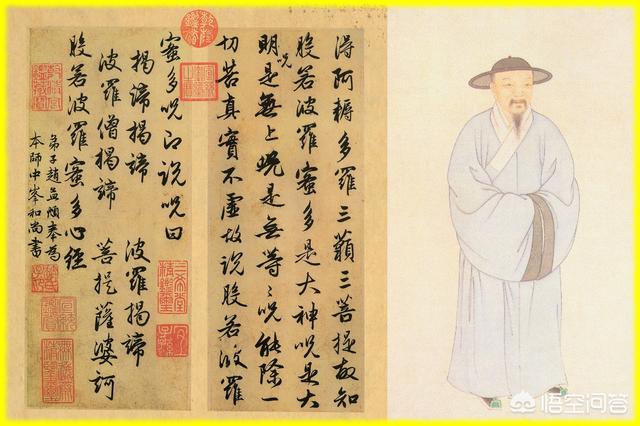 得阿耨多羅三藐三菩提故知
般若波羅蜜多是大神呪是大
明呪是無上呪是無等等呪能除一
切苦真實不虛故說般若波羅
蜜多呪即說呪曰
揭諦揭諦 波羅揭諦
波羅僧揭諦 菩提薩婆訶
般若波羅蜜多心經
弟子趙孟頫奉為
本師中峯和尚書
三希堂精鑑璽
宜子孫
悟空问答